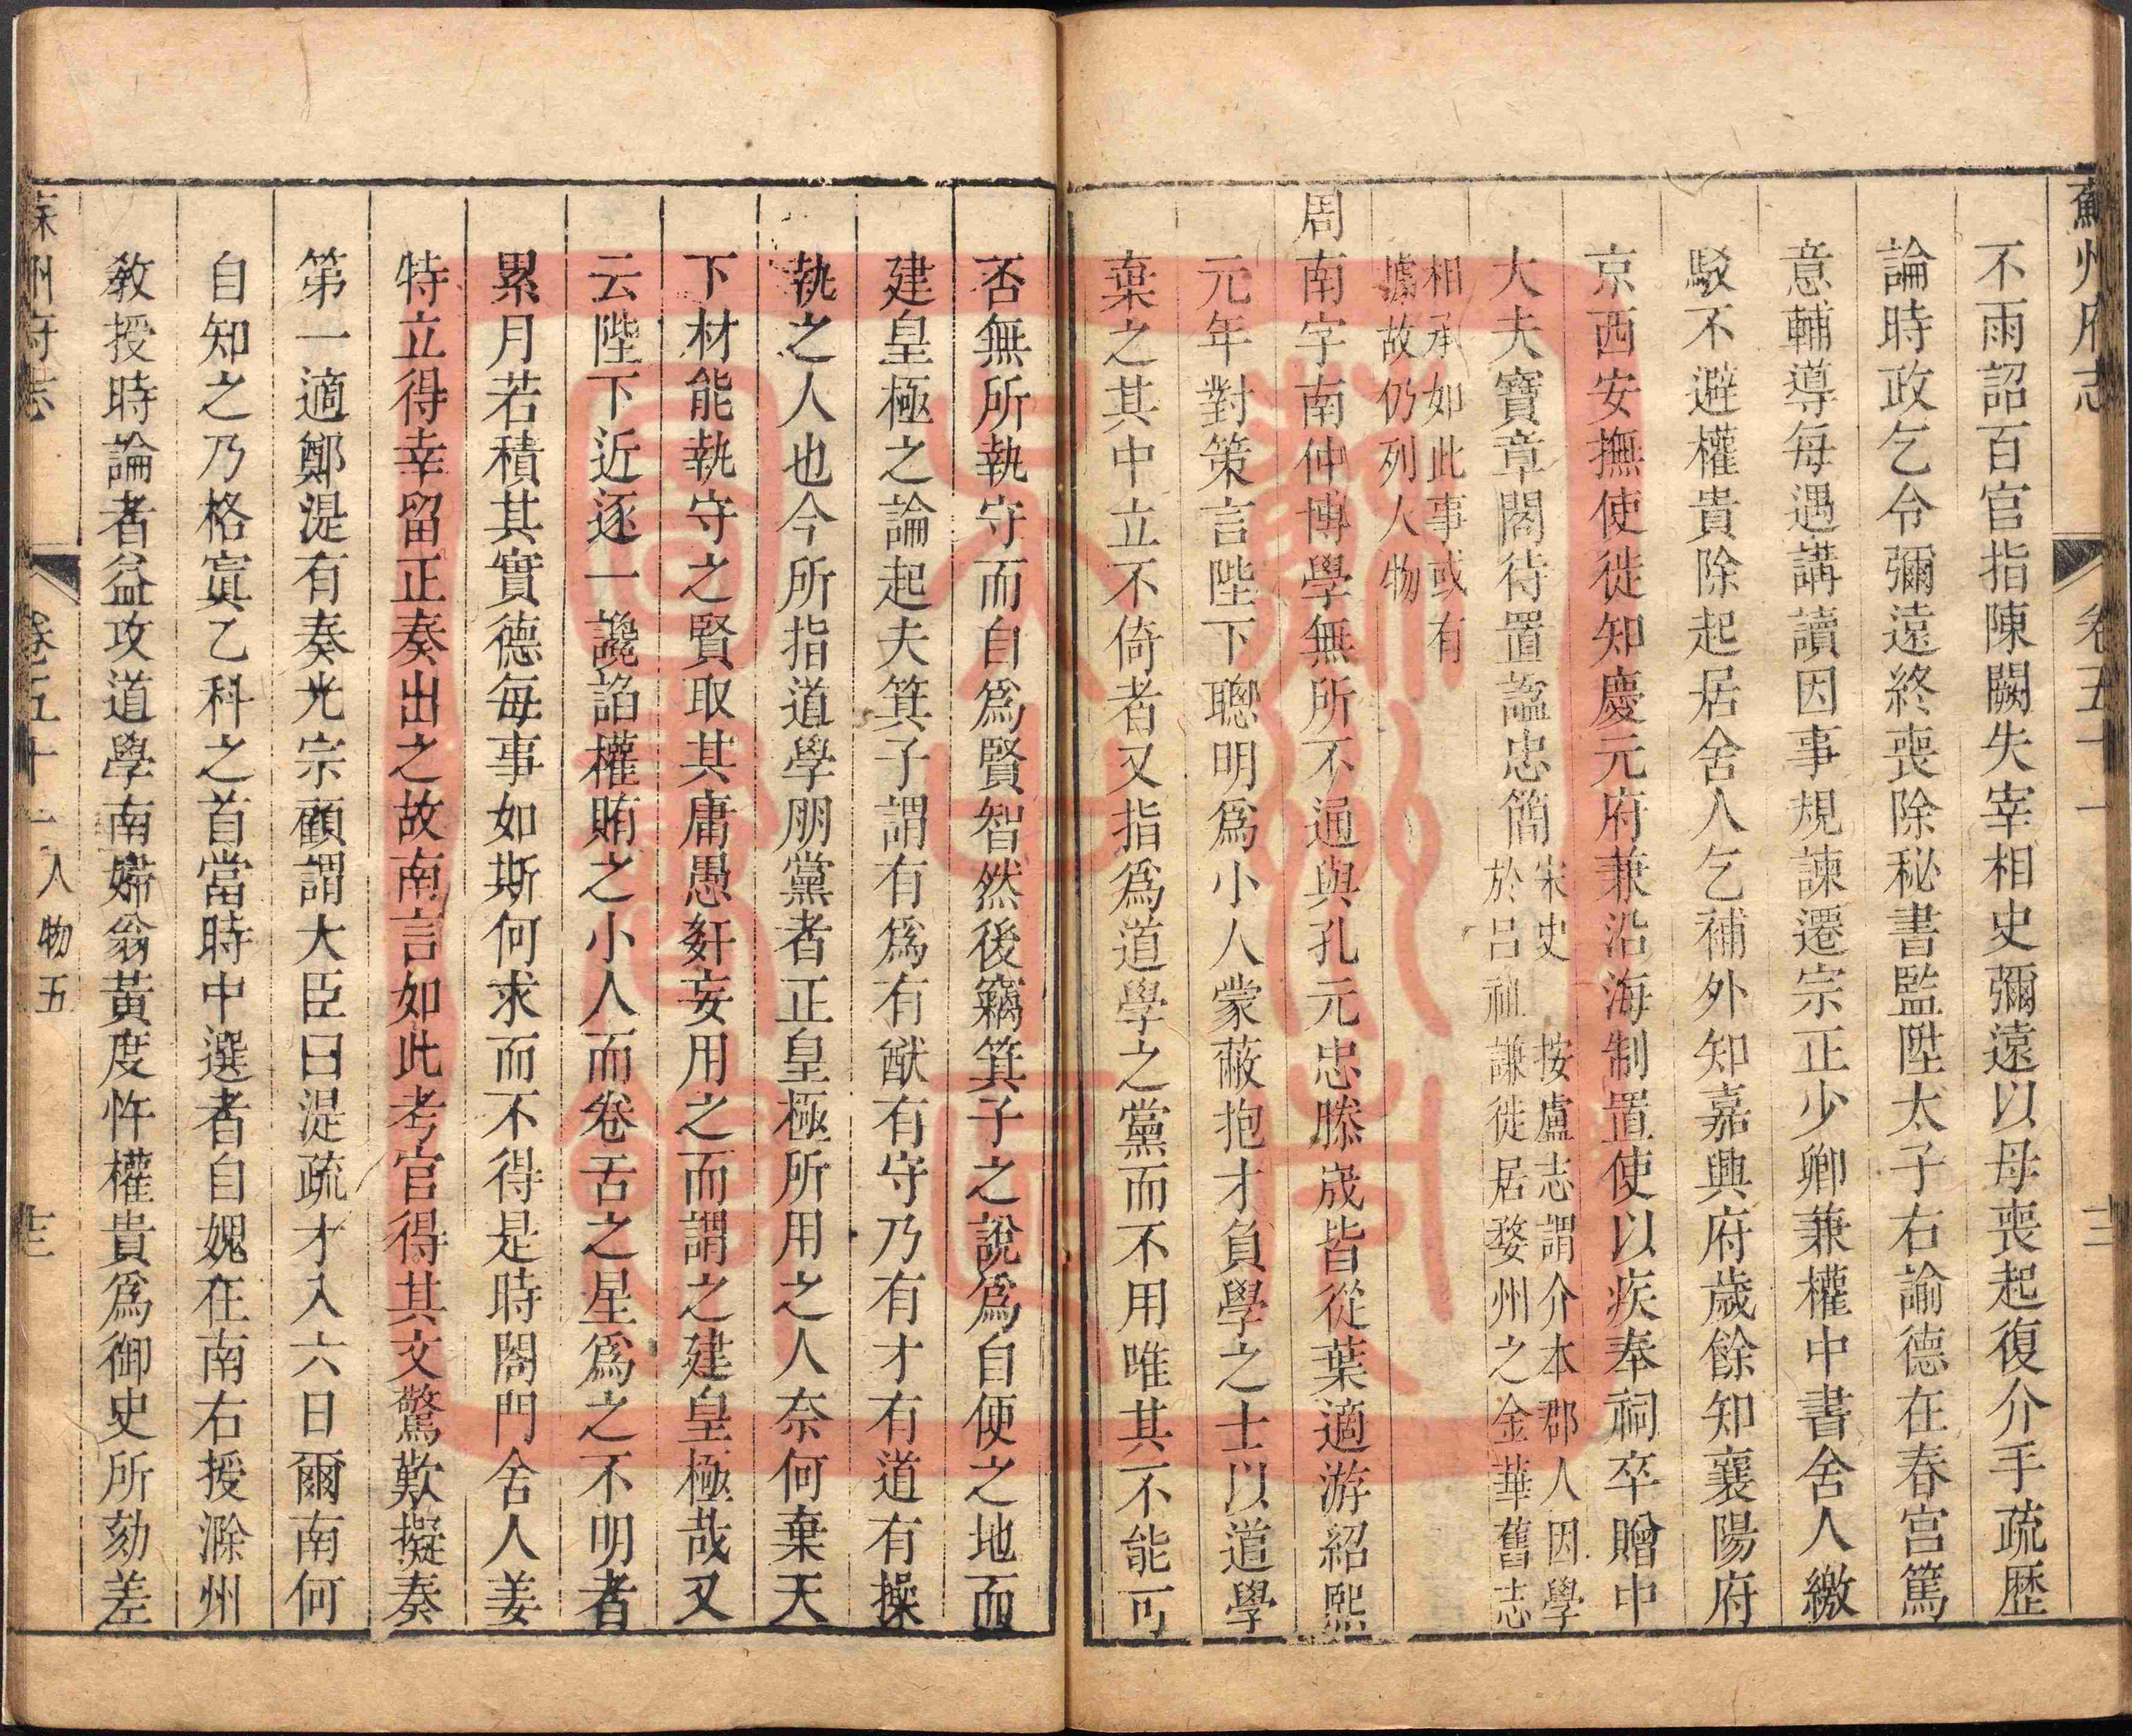 蘇州府志
卷五十一
三
不雨詔百官指陳闕失宰相史彌遠以母喪起復介手疏歷
論時政乞令彌遠終喪除秘書監陞太子右諭德在春宮篤
意輔導每遇講讀因事規諫遷宗正少卿兼權中書舍人繳
駁不避權貴除起居舍人乞補外知嘉興府歲餘知襄陽府
京西安撫使徙知慶元府兼沿海制置使以疾奉祠卒贈中
大夫寶章閣待置諡忠簡
宋史 按盧志謂介本郡人因學
於呂祖謙徙居婺州之金華舊志
相承如此事或有
據故仍列人物
周南字南仲博學無所不通與孔元忠滕宬皆從葉適游紹熙
元年對策言陛下聰明爲小人蒙蔽抱才負學之士以道學
棄之其中立不倚者又指爲道學之黨而不用唯其不能可
否無所執守而自爲賢智然後竊箕子之說爲自便之地而
建皇極之論起夫箕子謂有爲有猷有守乃有才有道有操
執之人也今所指道學朋黨者正皇極所用之人奈何棄天
下材能執守之賢取其庸愚姧妄用之而謂之建皇極哉又
云陛下近逐一讒諂權賄之小人而卷舌之星爲之不明者
累月若積其實德每事如斯何求而不得是時閤門舍人姜
特立得幸留正奏出之故南言如此考官得其文驚歎擬奏
第一適鄭湜有奏光宗顧謂大臣曰湜疏才入六日爾南何
自知之乃格寘乙科之首當時中選者自媿在南右授滁州
敎授時論者益攻道學南婦翁黃度忤權貴爲御史所劾差
蘇州府志
卷五十一
人物五
三